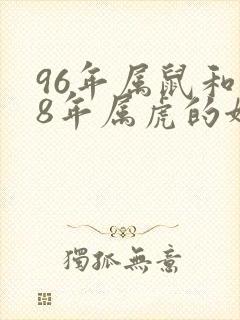 96年属鼠和
8年属虎的
獨孤無意